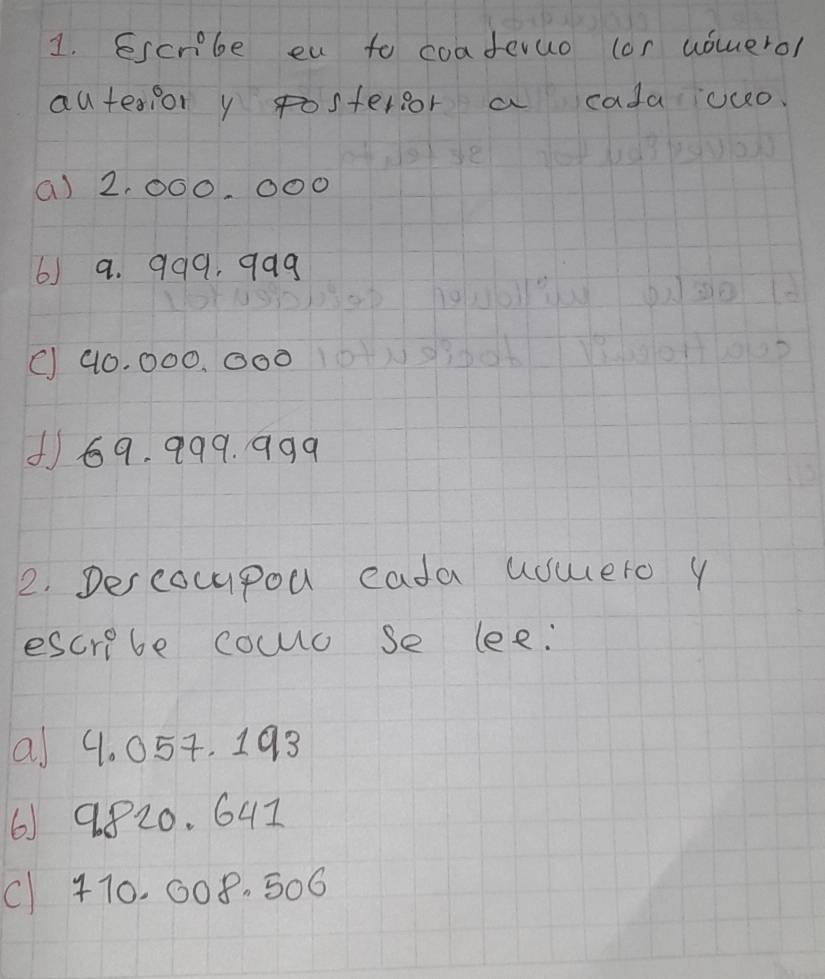 1. Escribe en tu cuaderno los números
anterior y posterior a cada uno.
a) 2.000.000
b) 9.999.999
c) 40.000.000
d) 69.999.999
2. Descompon cada número y
escribe como se lee:
a) 4.057.193
b) 9.820.641
c) 710.008.506